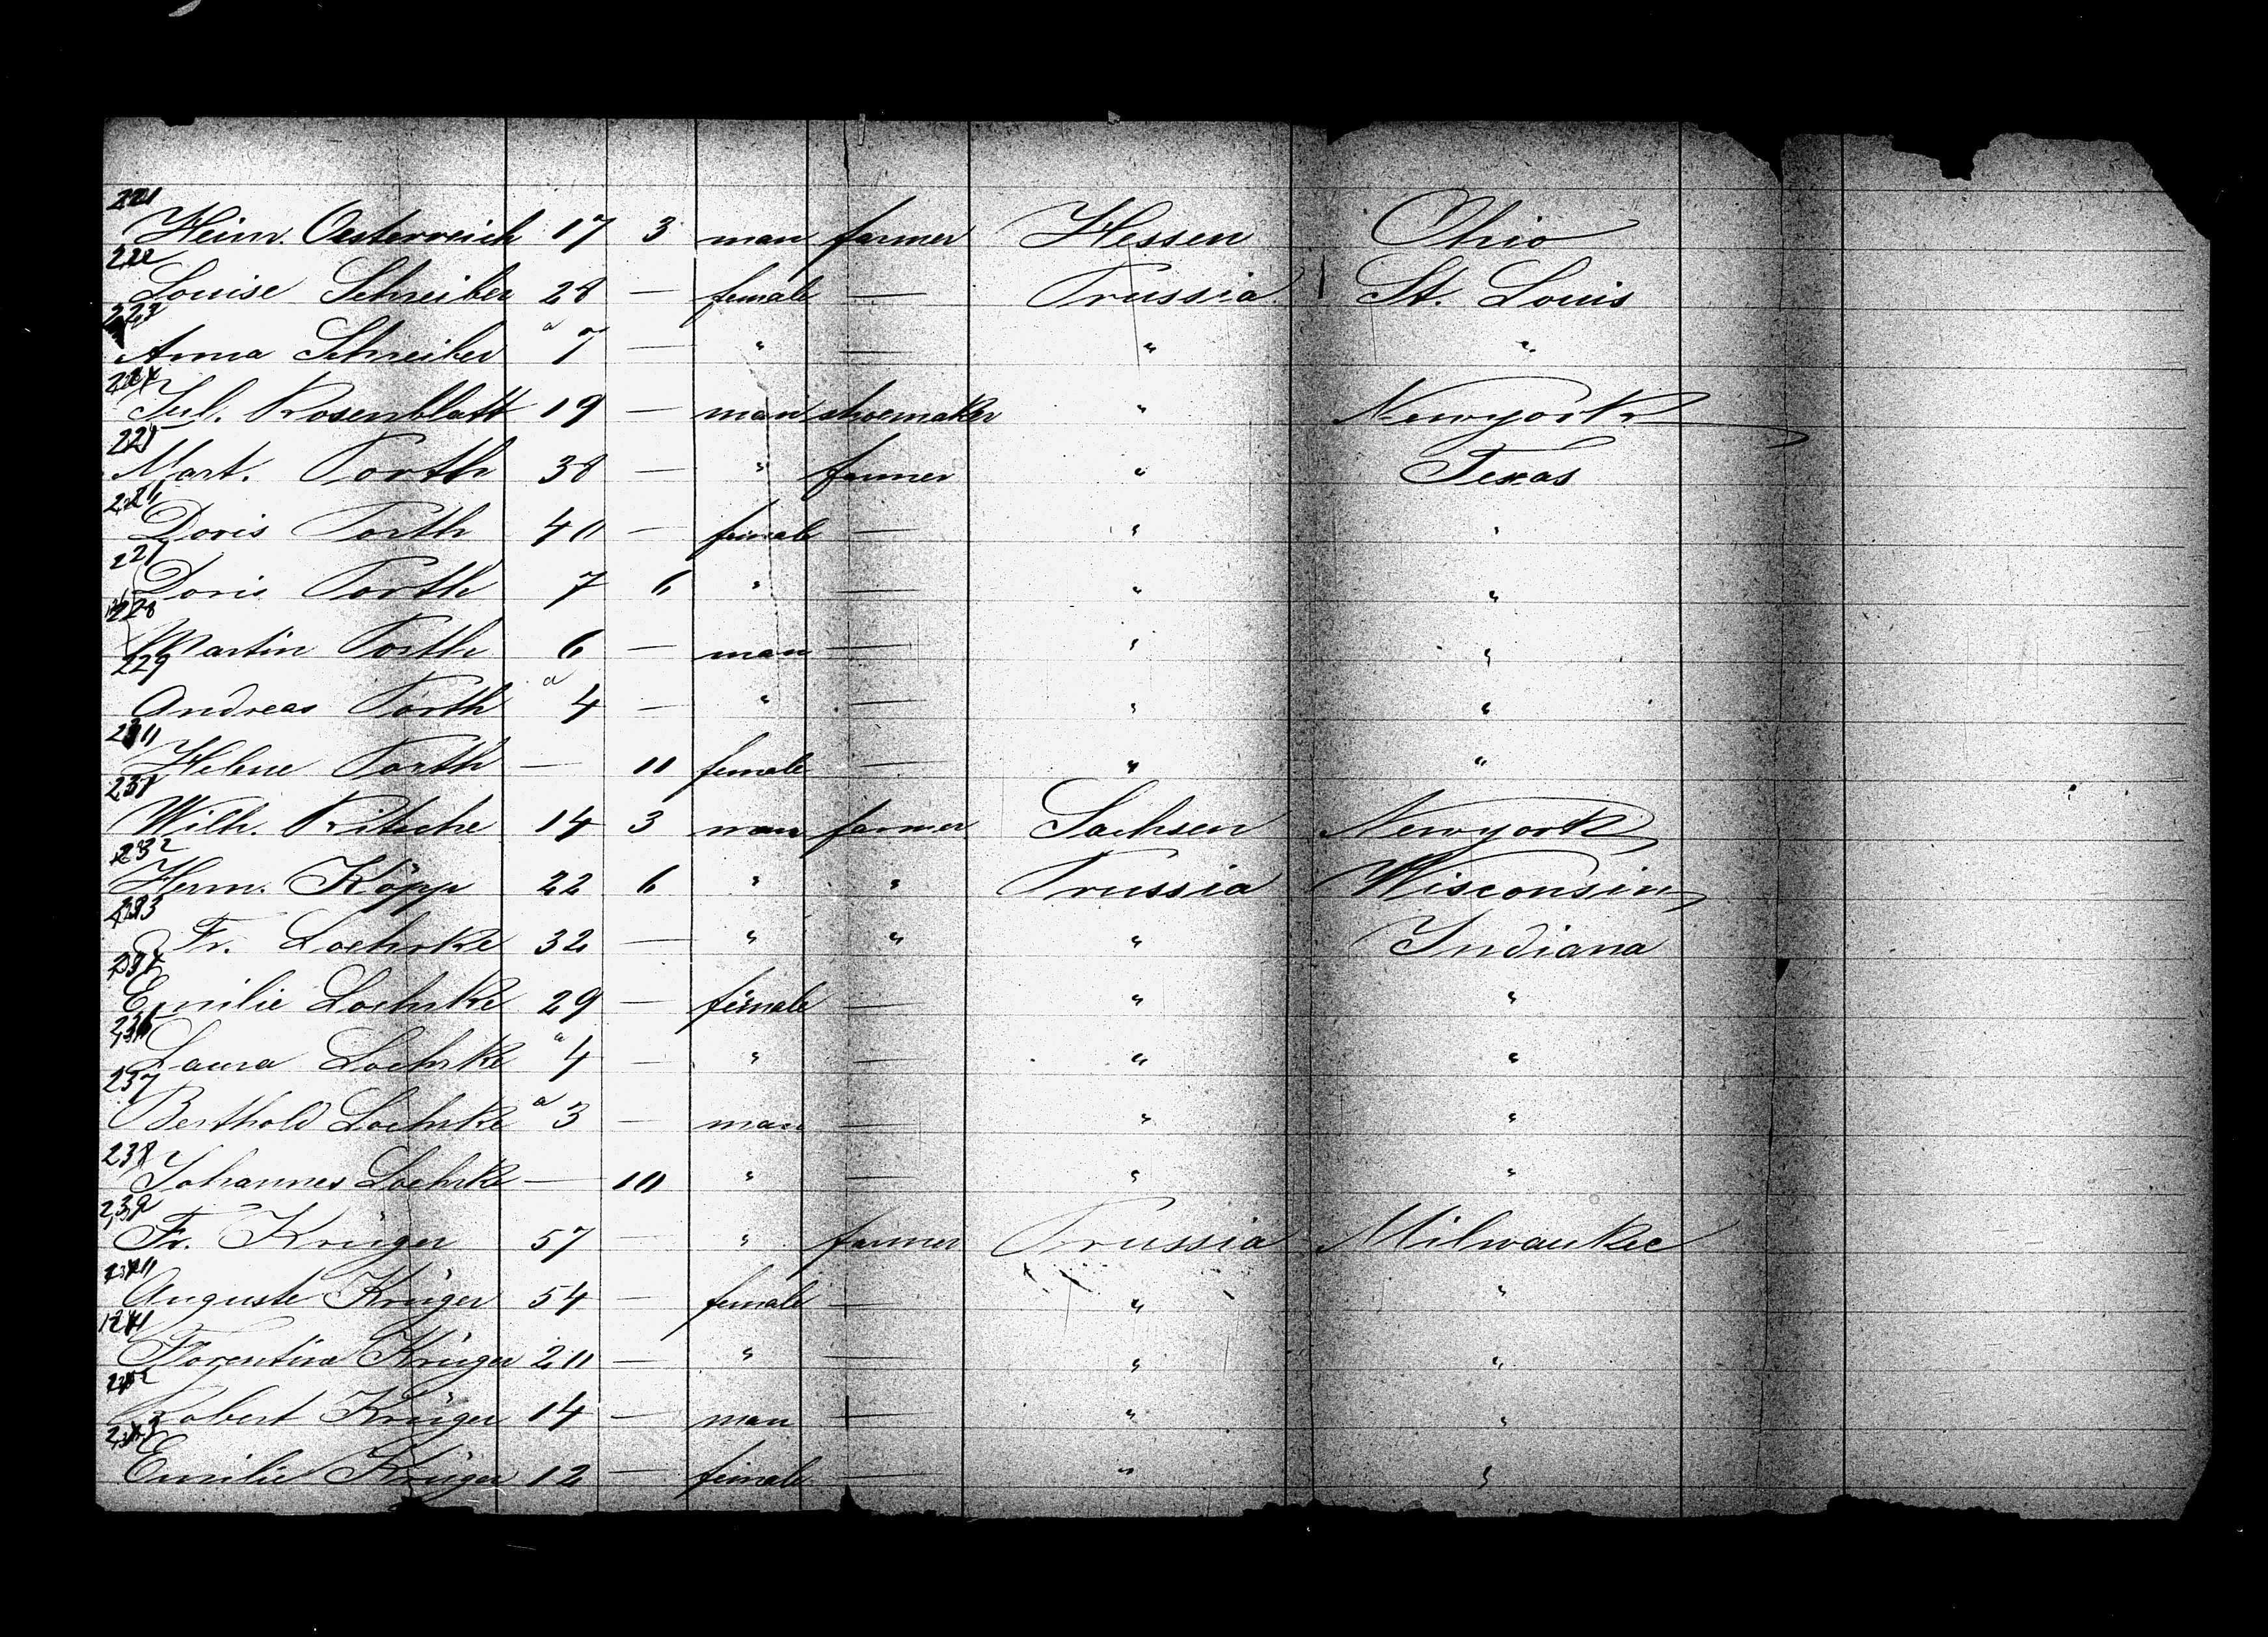 221
Heinr. Oesterreich 17 3 man farmer Hessen Ohio
222
Louise Schreiber 28 — female — Prussia St. Louis
223
Anna Schreiber a 7 — " — " "
224
Jul. Rosenblatt 19 — man shoemaker " Newyork
225
Mart. Porth 38 — " farmer " Texas
226
Doris Porth 40 — female — " "
227
Doris Porth 7 6 " — " "
228
Martin Porth 6 — man — " "
229
Andreas Porth a 4 — " — " "
230
Helene Porth — 11 female — " "
231
Wilh. Kitsche 14 3 man farmer Sachsen Newyork
232
Herm. Köpp 22 6 " " Prussia Wisconsin
233
Fr. Loehrke 32 — " " " Indiana
Emilie Loehrke 29 — female — " "
236
Laura Loehrke a 4 — " — " "
237
Berthold Loehrke a 3 — man — " "
238
Johannes Loehrke — 10 " — " "
239
Fr. Krüger 57 — " farmer Prussia Milwaukee
240
Auguste Krüger 54 — female — " "
241
Florentine Krüger 20 — " — " "
242
Robert Krüger 14 — man — " "
243
Emilie Krüger 12 — female — " "